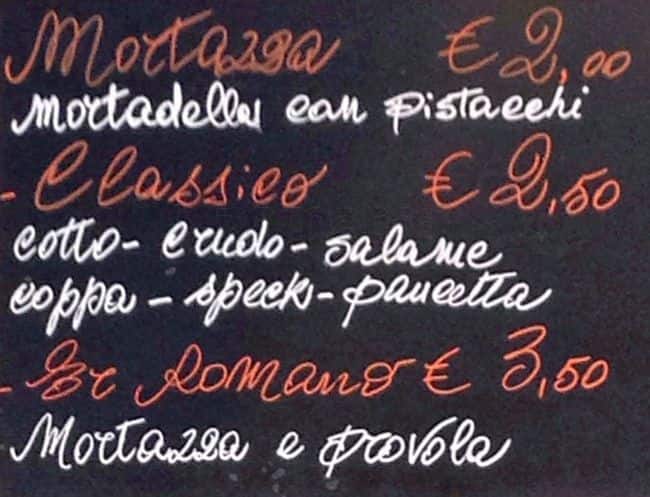 Mortazza € 2,00
mortadella con pistacchi
- Classico € 2,50
cotto - crudo - salame
coppa - speck - pancetta
- Er Romano € 3,50
Mortazza e provola